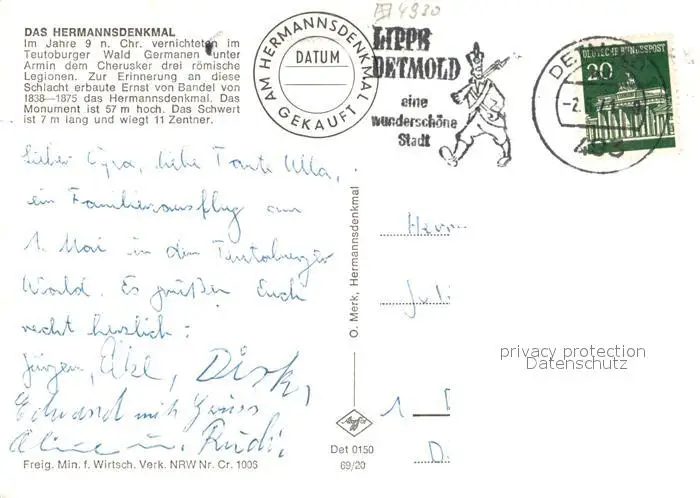 DAS HERMANNSDENKMAL
Im Jahre 9 n. Chr. vernichteten im
Teutoburger Wald Germanen unter
Armin dem Cherusker drei römische
Legionen. Zur Erinnerung an diese
Schlacht erbaute Ernst von Bandel von
1838—1875 das Hermannsdenkmal. Das
Monument ist 57 m hoch. Das Schwert
ist 7 m lang und wiegt 11 Zentner.
AM HERMANNSDENKMAL
DATUM
GEKAUFT
4930
LIPPE
DETMOLD
eine
wunderschöne
Stadt
DEUTSCHE BUNDESPOST
20
493
Lieber Opa, liebe Tante Ulla,
ein Familienausflug am
1. Mai in den Teutoburger
Wald. Es grüßen Euch
recht herzlich:
Jürgen, Dirk,
Eduard mit
u. Rudi,
Freig. Min. f. Wirtsch. Verk. NRW Nr. Cr. 1006
O. Merk, Hermannsdenkmal
Det 0150
69/20
Herrn
Juli
1
D
privacy protection
Datenschutz